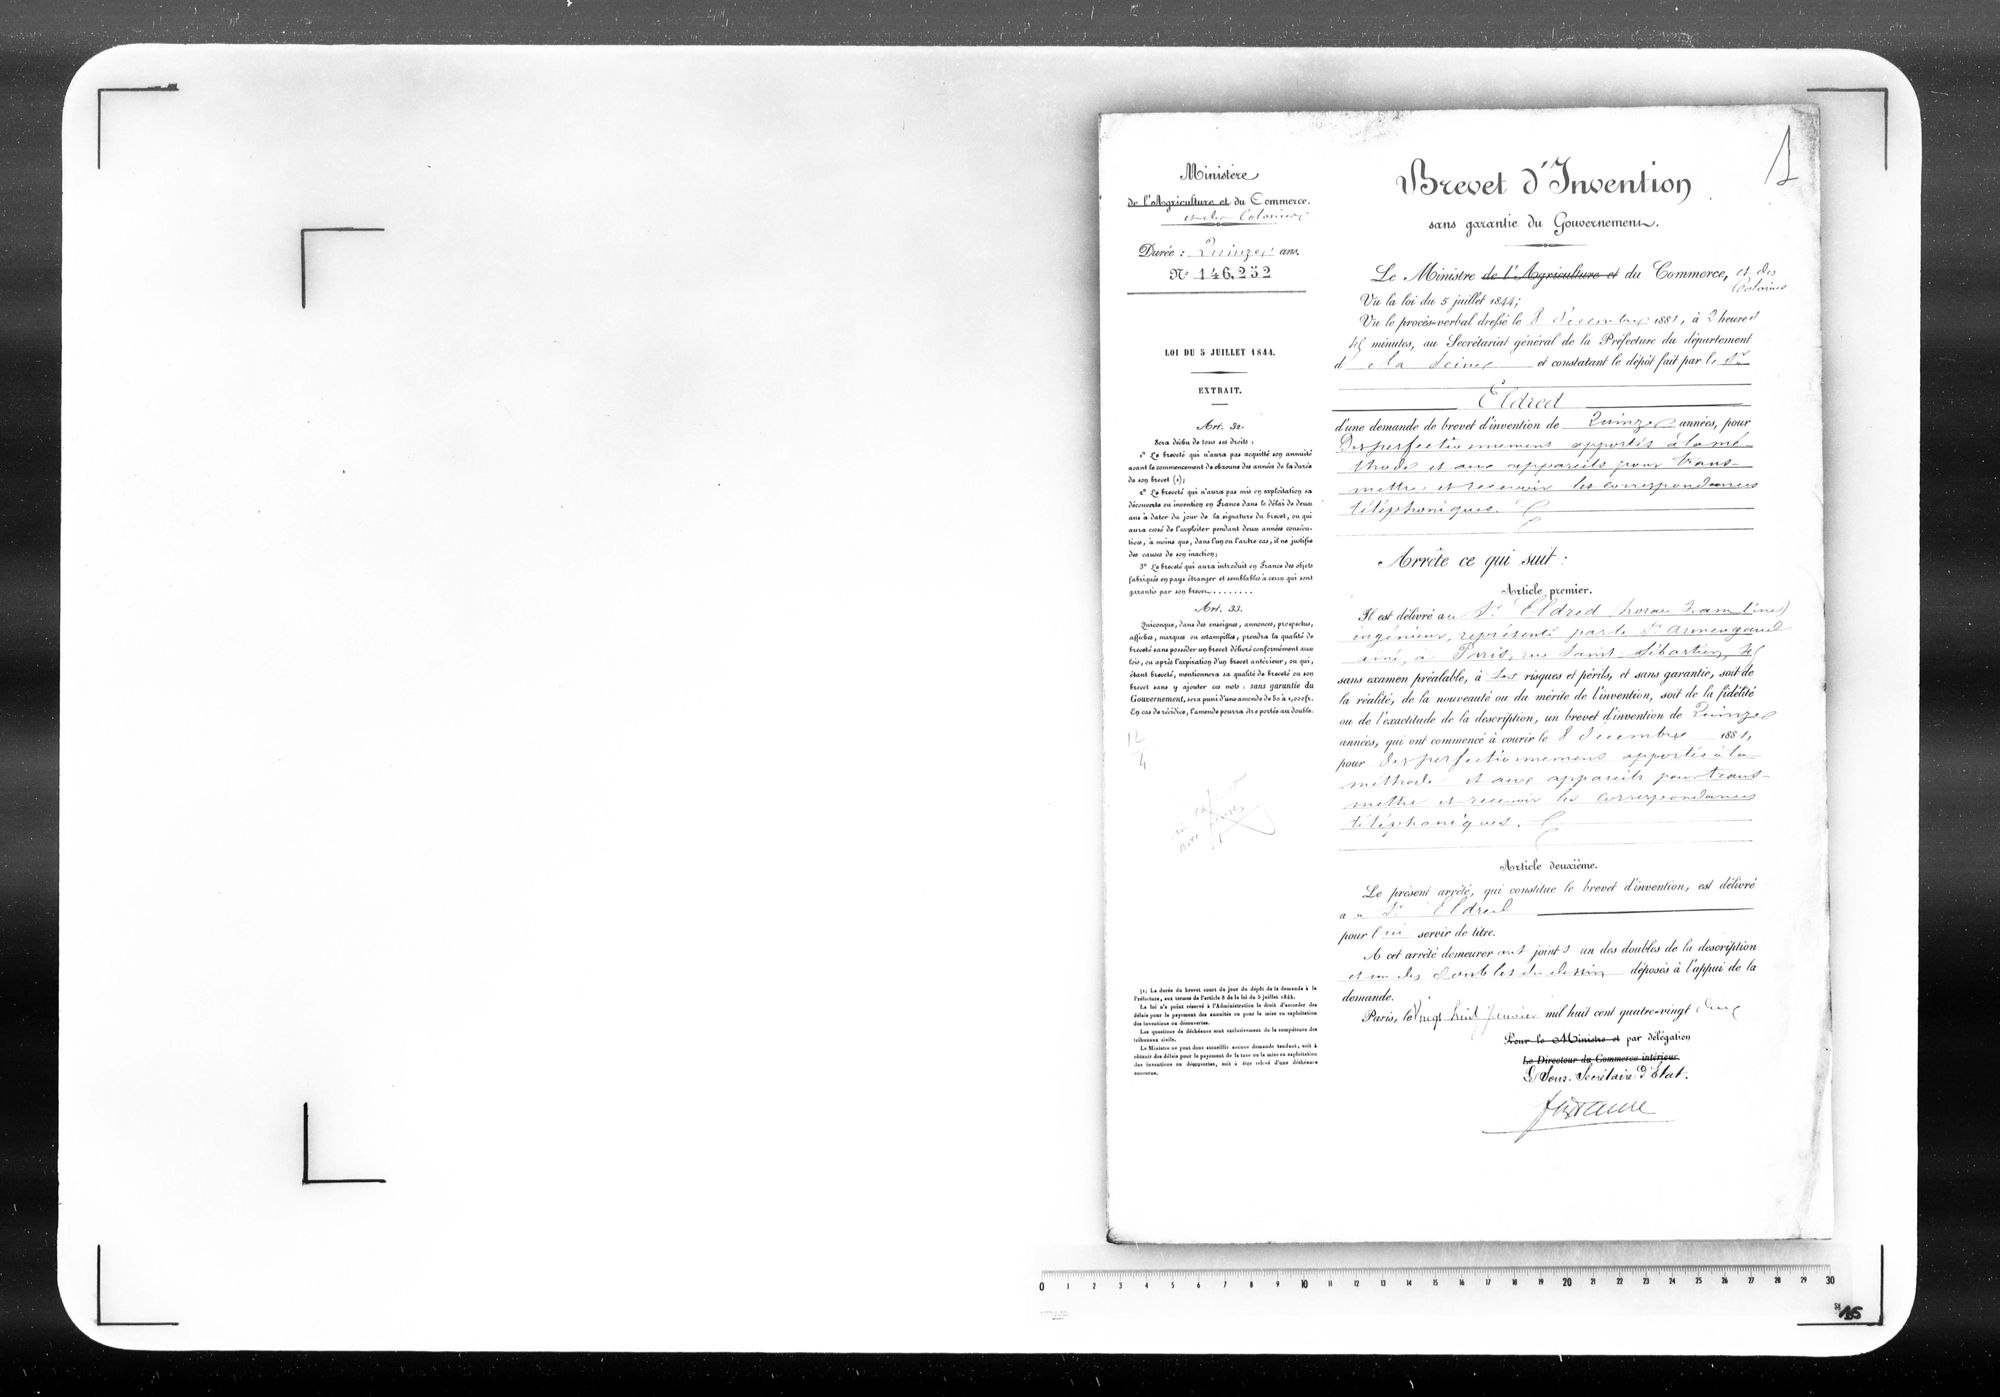 Ministère
de l'Agriculture et du Commerce.
et des Colonies
Durée : Quinze ans.
N° 146,252
LOI DU 5 JUILLET 1844.
EXTRAIT.
Art. 32.
Sera déchu de tous ses droits :
1° Le breveté qui n'aura pas acquitté son annuité
avant le commencement de chacune des années de la durée
de son brevet (1);
2° Le breveté qui n'aura pas mis en exploitation sa
découverte ou invention en France dans le délai de deux
ans à dater du jour de la signature du brevet, ou qui
aura cessé de l'exploiter pendant deux années consécu-
tives, à moins que, dans l'un ou l'autre cas, il ne justifie
des causes de son inaction;
3° Le breveté qui aura introduit en France des objets
fabriqués en pays étranger et semblables à ceux qui sont
garantis par son brevet........
Art. 33.
Quiconque, dans des enseignes, annonces, prospectus,
affiches, marques ou estampilles, prendra la qualité de
breveté sans posséder un brevet délivré conformément aux
lois, ou après l'expiration d'un brevet antérieur, ou qui,
étant breveté, mentionnera sa qualité de breveté ou son
brevet sans y ajouter ces mots : sans garantie du
Gouvernement, sera puni d'une amende de 50 à 1,000 fr.
En cas de récidive, l'amende pourra être portée au double.
12
4
(1) La durée du brevet court du jour du dépôt de la demande à la
Préfecture, aux termes de l'article 8 de la loi du 5 juillet 1844.
La loi n'a point réservé à l'Administration le droit d'accorder des
délais pour le payement des annuités ou pour la mise en exploitation
des inventions ou découvertes.
Les questions de déchéance sont exclusivement de la compétence des
tribunaux civils.
Le Ministre ne peut donc accueillir aucune demande tendant, soit à
obtenir des délais pour le payement de la taxe ou la mise en exploitation
des inventions ou découvertes, soit à être relevé d'une déchéance
encourue.
1
Brevet d'Invention
sans garantie du Gouvernement.
Le Ministre de l'Agriculture et du Commerce, et des
Colonies
Vu la loi du 5 juillet 1844;
Vu le procès-verbal dressé le 8 décembre 1881, à 2 heures
45 minutes, au Secrétariat général de la Préfecture du département
de la Seine et constatant le dépôt fait par le Sr
Eldred
d'une demande de brevet d'invention de Quinze années, pour
Des perfectionnements apportés à la mé-
thode et aux appareils pour trans-
mettre et recevoir les correspondances
téléphoniques.
Arrête ce qui suit :
Article premier.
Il est délivré au Sr Eldred (horace hamline)
ingénieur, représenté par le Sr Armengaud
aîné, à Paris, rue Saint-Sébastien, 45
sans examen préalable, à ses risques et périls, et sans garantie, soit de
la réalité, de la nouveauté ou du mérite de l'invention, soit de la fidélité
ou de l'exactitude de la description, un brevet d'invention de Quinze
années, qui ont commencé à courir le 8 décembre 1881,
pour des perfectionnements apportés à la
méthode et aux appareils pour trans-
mettre et recevoir les correspondances
téléphoniques.
Article deuxième.
Le présent arrêté, qui constitue le brevet d'invention, est délivré
au Sr Eldred
pour lui servir de titre.
A cet arrêté demeureront joints un des doubles de la description
et un des doubles du dessin déposés à l'appui de la
demande.
Paris, le Vingt huit Janvier mil huit cent quatre-vingt deux
Pour le Ministre et par délégation
Le Directeur du Commerce intérieur.
Le Sous-Secrétaire d'Etat.
0 1 2 3 4 5 6 7 8 9 10 11 12 13 14 15 16 17 18 19 20 21 22 23 24 25 26 27 28 29 30